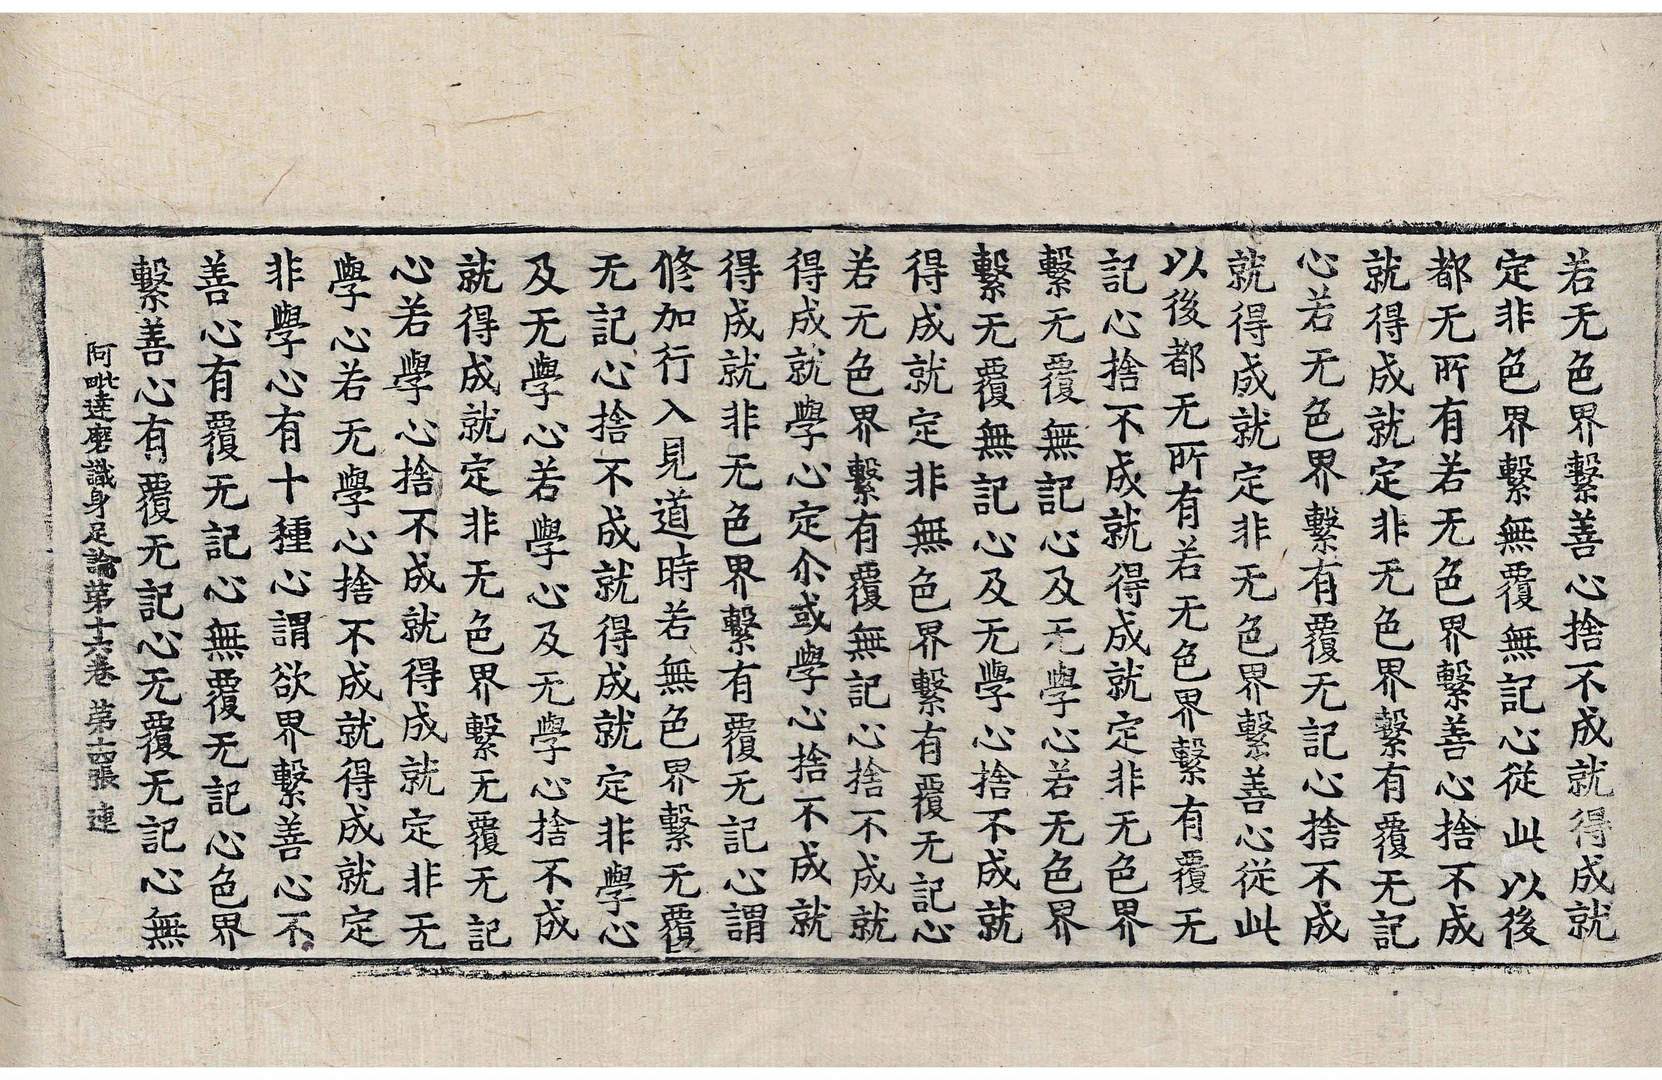 若无色界繫善心捨不成就得成就
定非色界繫無覆無記心從此以後
都无所有若无色界繫善心捨不成
就得成就定非无色界繫有覆无記
心若无色界繫有覆无記心捨不成
就得成就定非无色界繫善心從此
以後都无所有若无色界繫有覆无
記心捨不成就得成就定非无色界
繫无覆無記心及无學心若无色界
繫无覆無記心及无學心捨不成就
得成就定非無色界繫有覆无記心
若无色界繫有覆無記心捨不成就
得成就學心定尒或學心捨不成就
得成就非无色界繫有覆无記心謂
修加行入見道時若無色界繫无覆
无記心捨不成就得成就定非學心
及无學心若學心及无學心捨不成
就得成就定非无色界繫无覆无記
心若學心捨不成就得成就定非无
學心若无學心捨不成就得成就定
非學心有十種心謂欲界繫善心不
善心有覆无記心無覆无記心色界
繫善心有覆无記心无覆无記心無
阿毗達磨識身足論第十六卷 第十四張 連